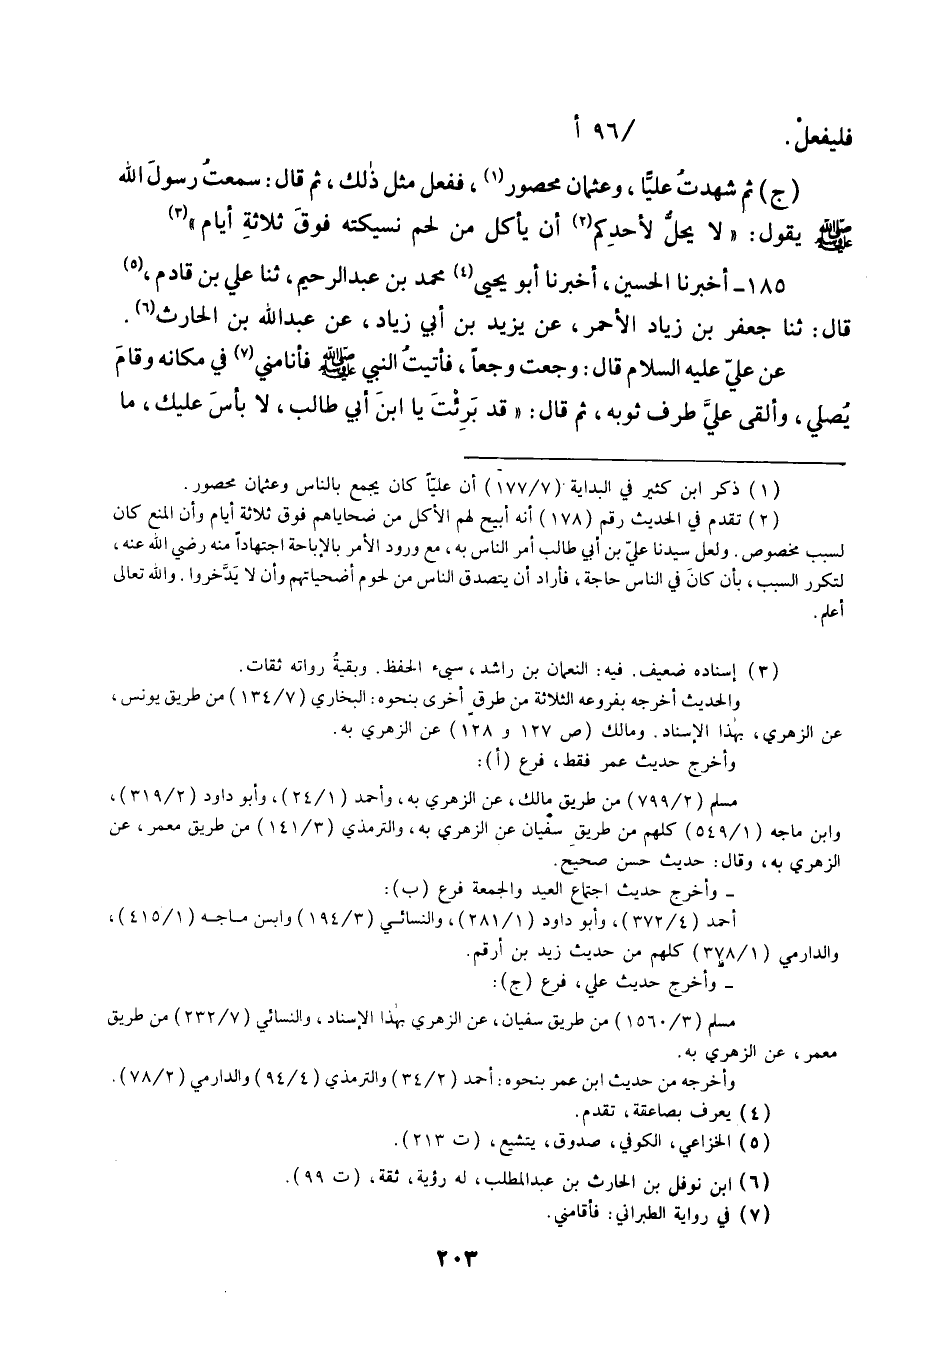 فليفعلْ . /٩٦ أ
(ج) ثم شهدتُ عليًّا ، وعثمان محصور(١) ، ففعل مثل ذٰلك ، ثم قال : سمعتُ رسولَ الله
ﷺ يقول : « لا يحلُّ لأحدِكم(٢) أن يأكل من لحم نسيكته فوقَ ثلاثةِ أيام »(٣)
١٨٥ـ أخبرنا الحسين ، أخبرنا أبو يحيى(٤) محمد بن عبدالرحيم ، ثنا علي بن قادم ،(٥)
قال : ثنا جعفر بن زياد الأحمر ، عن يزيد بن أبي زياد ، عن عبدالله بن الحارث(٦) .
عن عليّ عليه السلام قال : وجعت وجعاً ، فأتيتُ النبي ﷺ فأنامني(٧) في مكانه وقامَ
يُصلي ، وألقى عليَّ طرف ثوبه ، ثم قال : « قد بَرِئْتَ يا ابنَ أبي طالب ، لا بأسَ عليك ، ما
(١) ذكر ابن كثير في البداية (١٧٧/٧) أن عليّاً كان يجمع بالناس وعثمان محصور .
(٢) تقدم في الحديث رقم (١٧٨) أنه أبيح لهم الأكل من ضحاياهم فوق ثلاثة أيام وأن المنع كان
لسبب مخصوص . ولعل سيدنا عليّ بن أبي طالب أمر الناس به ، مع ورود الأمر بالإباحة اجتهاداً منه رضي الله عنه ،
لتكرر السبب ، بأن كانَ في الناس حاجة ، فأراد أن يتصدق الناس من لحوم أضحياتهم وأن لا يَدَّخروا . والله تعالى
أعلم .
(٣) إسناده ضعيف . فيه : النعمان بن راشد ، سيىء الحفظ . وبقيةُ رواته ثقات .
والحديث أخرجه بفروعه الثلاثة من طرقٍ أخرى بنحوه : البخاري (١٣٤/٧) من طريق يونس ،
عن الزهري ، بهٰذا الإسناد . ومالك (ص ١٢٧ و ١٢٨) عن الزهري به .
وأخرج حديث عمر فقط ، فرع (أ) :
مسلم (٧٩٩/٢) من طريق مالك ، عن الزهري به ، وأحمد (٢٤/١) ، وأبو داود (٣١٩/٢) ،
وابن ماجه (٥٤٩/١) كلهم من طريق سفيان عن الزهري به ، والترمذي (١٤١/٣) من طريق معمر ، عن
الزهري به ، وقال : حديث حسن صحيح .
ـ وأخرج حديث اجتماع العيد والجمعة فرع (ب) :
أحمد (٣٧٢/٤) ، وأبو داود (٢٨١/١) ، والنسائي (١٩٤/٣) وابن ماجه (٤١٥/١) ،
والدارمي (٣٧٨/١) كلهم من حديث زيد بن أرقم .
ـ وأخرج حديث علي ، فرع (ج) :
مسلم (١٥٦٠/٣) من طريق سفيان ، عن الزهري بهٰذا الإسناد ، والنسائي (٢٣٢/٧) من طريق
معمر ، عن الزهري به .
وأخرجه من حديث ابن عمر بنحوه : أحمد (٣٤/٢) والترمذي (٩٤/٤) والدارمي (٧٨/٢) .
(٤) يعرف بصاعقة ، تقدم .
(٥) الخزاعي ، الكوفي ، صدوق ، يتشيع ، (ت ٢١٣) .
(٦) ابن نوفل بن الحارث بن عبدالمطلب ، له رؤية ، ثقة ، (ت ٩٩) .
(٧) في رواية الطبراني : فأقامني .
٢٠٣